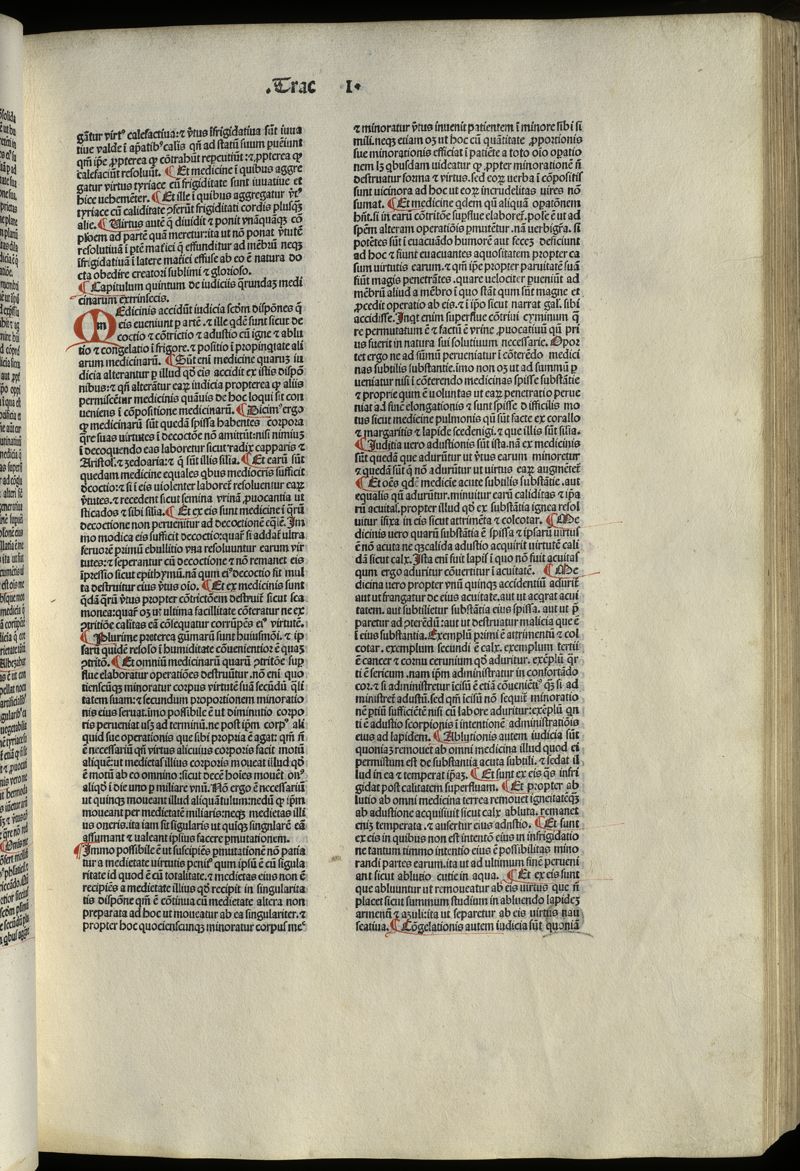 .Trac I.
gãtur virtꝰ calefactiua:⁊ ṽtus ĩfrigidatiua sũt iuua
tiue valde ĩ ap̃atibꝰ calis qñ ad statũ suum pueniunt
qm̃ ip̃e ꝓpterea qꝫ cõtrahũt repcutiũt:⁊ ꝓpterea qꝫ
calefaciũt resoluũt. ¶ Et medicine ĩ quibus aggre
gatur virtus tyriace cũ frigiditate sunt iuuatiue et
hice vehemẽter. ¶ Et ille ĩ quibus aggregatur ṽtꝰ
tyriace cũ caliditate ↄferũt frigiditati cordis plusqꝫ
alie. ¶ Virtus autẽ q̃ diuidit ⁊ ponit vnãquãqꝫ cõ
resolutiuã ĩ ptẽ mat̃iei q̃ effunditur ad mẽbrũ neqꝫ
ĩfrigidatiuã ĩ latere mat̃iei effuse ab eo ẽ natura do
cta obedire creatori sublimi ⁊ glorioso.
¶ Capitulum quintum de iudiciis qrundaꝫ medi
cinarum extrinsecis.
MEdicinis accidũt iudicia scõm dispõnes q̃
eis eueniunt ꝑ artẽ. ⁊ ille qdẽ sunt sicut de
coctio ⁊ cõtrictio ⁊ adustio cũ igne ⁊ ablu
tio ⁊ congelatio ĩ frigore. ⁊ positio ĩ propinqtate ali
arum medicinarũ. ¶ Sũt enĩ medicine quarũ iu
dicia alterantur ꝑ illud qd̃ eis accidit ex istis dispõ
nibus:⁊ qñ alterãtur eaꝝ iudicia propterea qꝫ aliis
permiscẽtur medicinis quãuis de hoc loqui sit con
ueniens ĩ cõpositione medicinarũ. ¶ Dicimꝰ ergo
qꝫ medicinarũ sũt quedã spissa habentes corpora
q̃re suas virtutes ĩ decoctõe nõ amittũt:nisi nimius
ĩ decoquendo eas laboretur sicut radix capparis ⁊
Aristol. ⁊ zedoaria: ⁊ q̃ sũt illis silia. ¶ Et earũ sũt
quedam medicine equales qbus mediocris sufficit
decoctio:⁊ si ĩ eis violenter laboret̃ resoluentur eaꝝ
ṽtutes. ⁊ recedent sicut semina vrinã ꝓuocantia ut
sticados ⁊ sibi silia. ¶ Et ex eis sunt medicine ĩ q̃rũ
decoctione non peruenitur ad decoctionẽ eq̃lẽ. Im
mo modica eis sufficit decoctio:quaꝝ si addat̃ ultra
feruorẽ primũ ebullitio vna resoluuntur earum vir
tutes:⁊ seperantur cũ decoctione ⁊ nõ remanet eis
ĩpressio sicut epithymũ. nã qum eiꝰ decoctio sit mul
ta destruitur eius ṽtus oĩo. ¶ Et ex medicinis sunt
qdã q̃rũ ṽtus propter cõtrictionẽ destruit̃ sicut sca
monea:quaꝝ oꝫ ut ultima facillitate cõteratur ne ex
ↄtritiõe calitas eã cõsequatur corrũpẽs eiꝰ virtutẽ.
¶ Plurime preterea gũmarũ sunt huiusmõi. ⁊ ip
sarũ quidẽ resoło ĩ humiditate cõuenientior ẽ quaꝫ
ↄtritõ. ¶ Et omniũ medicinarũ quarũ ↄtritõe sup
flue elaboratur operatiões destruũtur. nõ enĩ quo
tienscũqꝫ minoratur corpus virtutẽ suã secũdũ q̃li
tatem suam:⁊ secundum proportionem minoratio
nis eius seruat. imo possibile ẽ ut diminutio corpo
ris perueniat usqꝫ ad terminũ. ne post ip̃m corpꝰ ali
quid sue operationis que sibi propria ẽ agat: qm̃ ñ
ẽ necessariũ qñ virtus alicuius corporis facit motũ
aliquẽ:ut medietas illius corporis moueat illud qd̃
ẽ motũ ab eo omnino:sicut decẽ hoĩes mouẽt onꝰ
aliqd̃ ĩ die uno ꝑ miliare vnũ. Nõ ergo ẽ necessariũ
ut quinqꝫ moueant illud aliquantulum:nedũ qꝫ ip̃m
moueant per medietatẽ miliaris:neqꝫ medietas illi
us oneris. ita iam sit sigularis ut quiqꝫ singularẽ eã
assumant ⁊ ualeant ipsius facere ꝑmutationem.
¶ Immo possibile ẽ ut suscipiẽs ꝑmutationẽ nõ patia
tur a medietate uirtutis penitꝰ quum ipsũ ẽ cũ sigula
ritate id quod ẽ cũ totalitate. ⁊ medietas eius non ẽ
recipiẽs a medietate illius qd̃ recipit in singularita
tis dispõne qm̃ ẽ cõtinua cũ medietate altera non
preparata ad hoc ut moueatur ab ea singulariter. ⁊
propter hoc quocienscunqꝫ minoratur corpus meꝰ
⁊ minoratur ṽtus inuenit patientem ĩ minore sibi si
mili. neqꝫ etiam oꝫ ut hoc cũ quãtitate ꝓportionis
sue minorationis efficiat ĩ patiẽte a toto oĩo opatio
nem lꝫ qbusdam uideatur qꝫ ꝓpter minorationẽ ñ
destruatur forma ⁊ virtus. sed eoꝝ verba ĩ cõpositis
sunt uicinora ad hoc ut eoꝝ incrudelitas uires nõ
sumat. ¶ Et medicine qdem qñ aliquã opatõnem
hñt. si in earũ cõtritõe supflue elaboret̃. poẽ ẽ ut ad
spẽm alteram operatiõis ꝑmutẽtur. nã uerbigr̃a. si
potẽtes sũt ĩ euacuãdo humorẽ aut feceꝫ deficiunt
ad hoc ⁊ fiunt euacuantes aquositatem propter ca
sum virtutis earum. ⁊ qm̃ ip̃e propter paruitatẽ suã
fiũt magis penetrãtes. quare uelociter pueniũt ad
mẽbrũ aliud a mẽbro ĩ quo stãt qum sũt magne et
ꝓcedit operatio ab eis. ⁊ ĩ ip̃o sicut narrat gal. sibi
accidisse. Inqt enim superflue cõtriui cyminum q̃
re permutatum ẽ ⁊ factũ ẽ vrine ꝓuocatiuũ qũ pri
us fuerit in natura sui solutiuum necessarie. Opor
tet ergo ne ad sũmũ perueniatur ĩ cõterẽdo medici
nas subtilis substantie. imo non oꝫ ut ad summũ p
ueniatur nisi ĩ conterendo medicinas spisse substãtie
⁊ proprie qum ẽ uoluntas ut eaꝝ penetratio perue
niat ad finẽ elongationis ⁊ sunt spisse difficilis mo
tus sicut medicine pulmonis qũ sũt facte ex corallo
⁊ margaritis ⁊ lapide scedenigi. ⁊ que illis sũt silia.
¶ Iuditia uero adustionis sũt ista. nã ex medicinis
sũt quedã que adurũtur ut ṽtus earum minoretur
⁊ quedã sũt q̃ nõ adurũtur ut uirtus eaꝝ augmẽtet̃
¶ Et oẽs qdẽ medicĩe acute subtilis substãtie. aut
equalis qñ adurũtur. minuitur earũ caliditas ⁊ ip̃a
rũ acuitas. propter illud qd̃ ex substãtia ignea resol
uitur ĩfixa in eis sicut attrimẽta ⁊ colcotar. ¶ Me
dicinis uero quarũ substãtia ẽ spissa ⁊ ipsarũ uirtus
ẽ nõ acuta ne qꝫ calida adustio acquirit virtutẽ cali
dã sicut calx. Ista enĩ fuit lapis ĩ quo nõ fuit acuitas
qum ergo aduritur cõuertitur ĩ acuitatẽ. ¶ Me
dicina uero propter vnũ quinqꝫ accidentiũ adurit̃
aut ut frangatur de eius acuitate. aut ut acq̃rat acui
tatem. aut subtilietur substãtia eius spissa. aut ut p̃
paretur ad ↄterẽdũ:aut ut destruatur malicia que ẽ
ĩ eius substantia. Exemplũ primi ẽ attrimentũ ⁊ col
cotar. exemplum secundi ẽ calx. exemplum tertii
ẽ cancer ⁊ cornu ceruinum qd̃ aduritur. exẽplũ q̃r
ti ẽ sericum. nam ip̃m administratur in confortãdo
cor. ⁊ si administretur ĩcisũ ẽ etiã cõueniẽtiꝰ qꝫ si ad
ministret̃ adustũ. sed qm̃ ĩcisũ nõ sequit̃ minoratio
nẽ ꝑtiũ sufficiẽtẽ nisi cũ labore aduritur:exẽplũ qn
ti ẽ adustio scorpionis ĩ intentionẽ administratiõis
eius ad lapidem. ¶ Ablutionis autem iudicia sũt
quoniaꝫ remouet ab omni medicina illud quod ei
permistum est de substantia acuta subtili. ⁊ sedat il
lud in ea ⁊ temperat ip̃aꝫ. ¶ Et sunt ex eis q̃s infri
gidat post calitatem superfluam. ¶ Et propter ab
lutio ab omni medicina terrea remouet igneitatẽqꝫ
ab adustione acquisiuit sicut calx abluta. remanet
eniꝫ temperata. ⁊ aufertur eius adustio. ¶ Et sunt
ex eis in quibus non est intentõ eius in infrigidatio
ne tantum ũmmo intentio eius ẽ possibilitas mino
randi partes earum. ita ut ad ultimum finẽ perueni
ant sicut ablutio cutie in aqua. ¶ Et ex eis sunt
que abluuntur ut remoueatur ab eis uirtus que ñ
placet sicut summum studium in abluendo lapideꝫ
armenũ ⁊ azuli:ita ut separetur ab eis uirtus nau
seatiua. ¶ Cõgelationis autem iudicia sũt quoniã